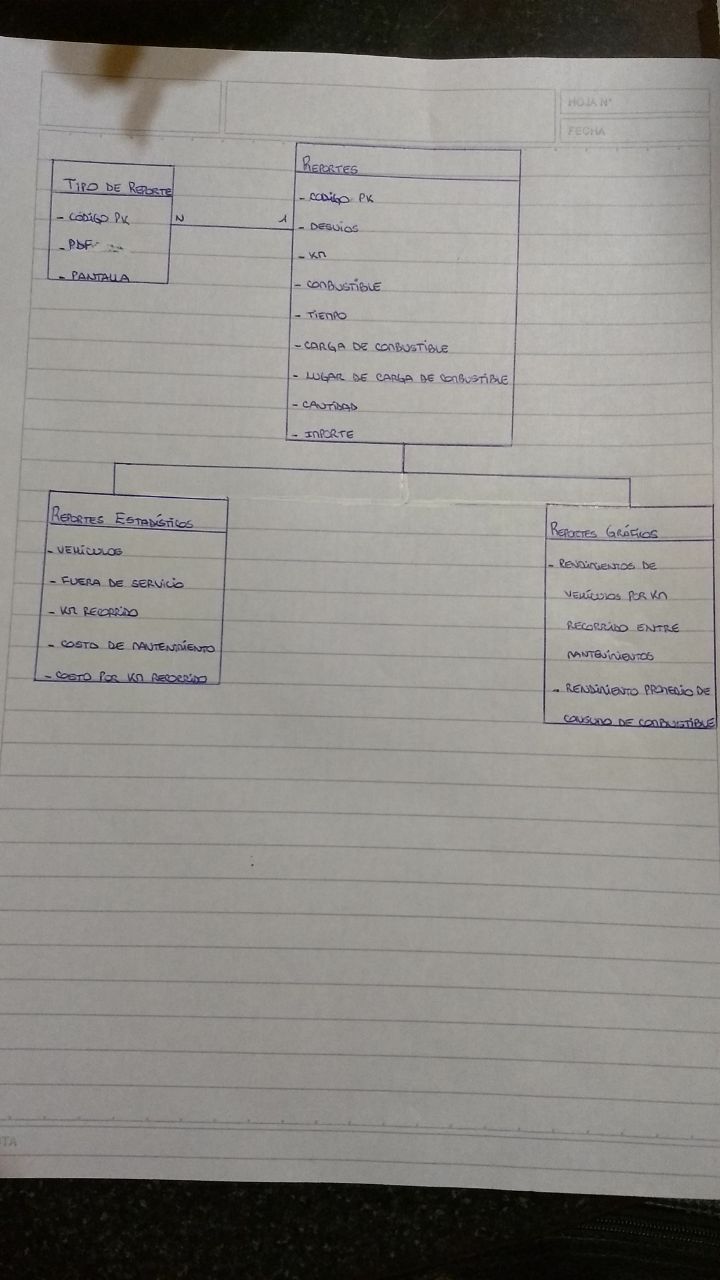 HOJA N°
FECHA
TIPO DE REPORTE
- CÓDIGO PK
- PDF
- PANTALLA
N 1
REPORTES
- CODIGO PK
- DESVIOS
- KM
- COMBUSTIBLE
- TIEMPO
- CARGA DE COMBUSTIBLE
- LUGAR DE CARGA DE COMBUSTIBLE
- CANTIDAD
- IMPORTE
REPORTES ESTADÍSTICOS
- VEHÍCULOS
- FUERA DE SERVICIO
- KM RECORRIDO
- COSTO DE MANTENIMIENTO
- COSTO POR KM RECORRIDO
REPORTES GRÁFICOS
- RENDIMIENTOS DE
VEHÍCULOS POR KM
RECORRIDO ENTRE
MANTENIMIENTOS
- RENDIMIENTO PROMEDIO DE
CONSUMO DE COMBUSTIBLE